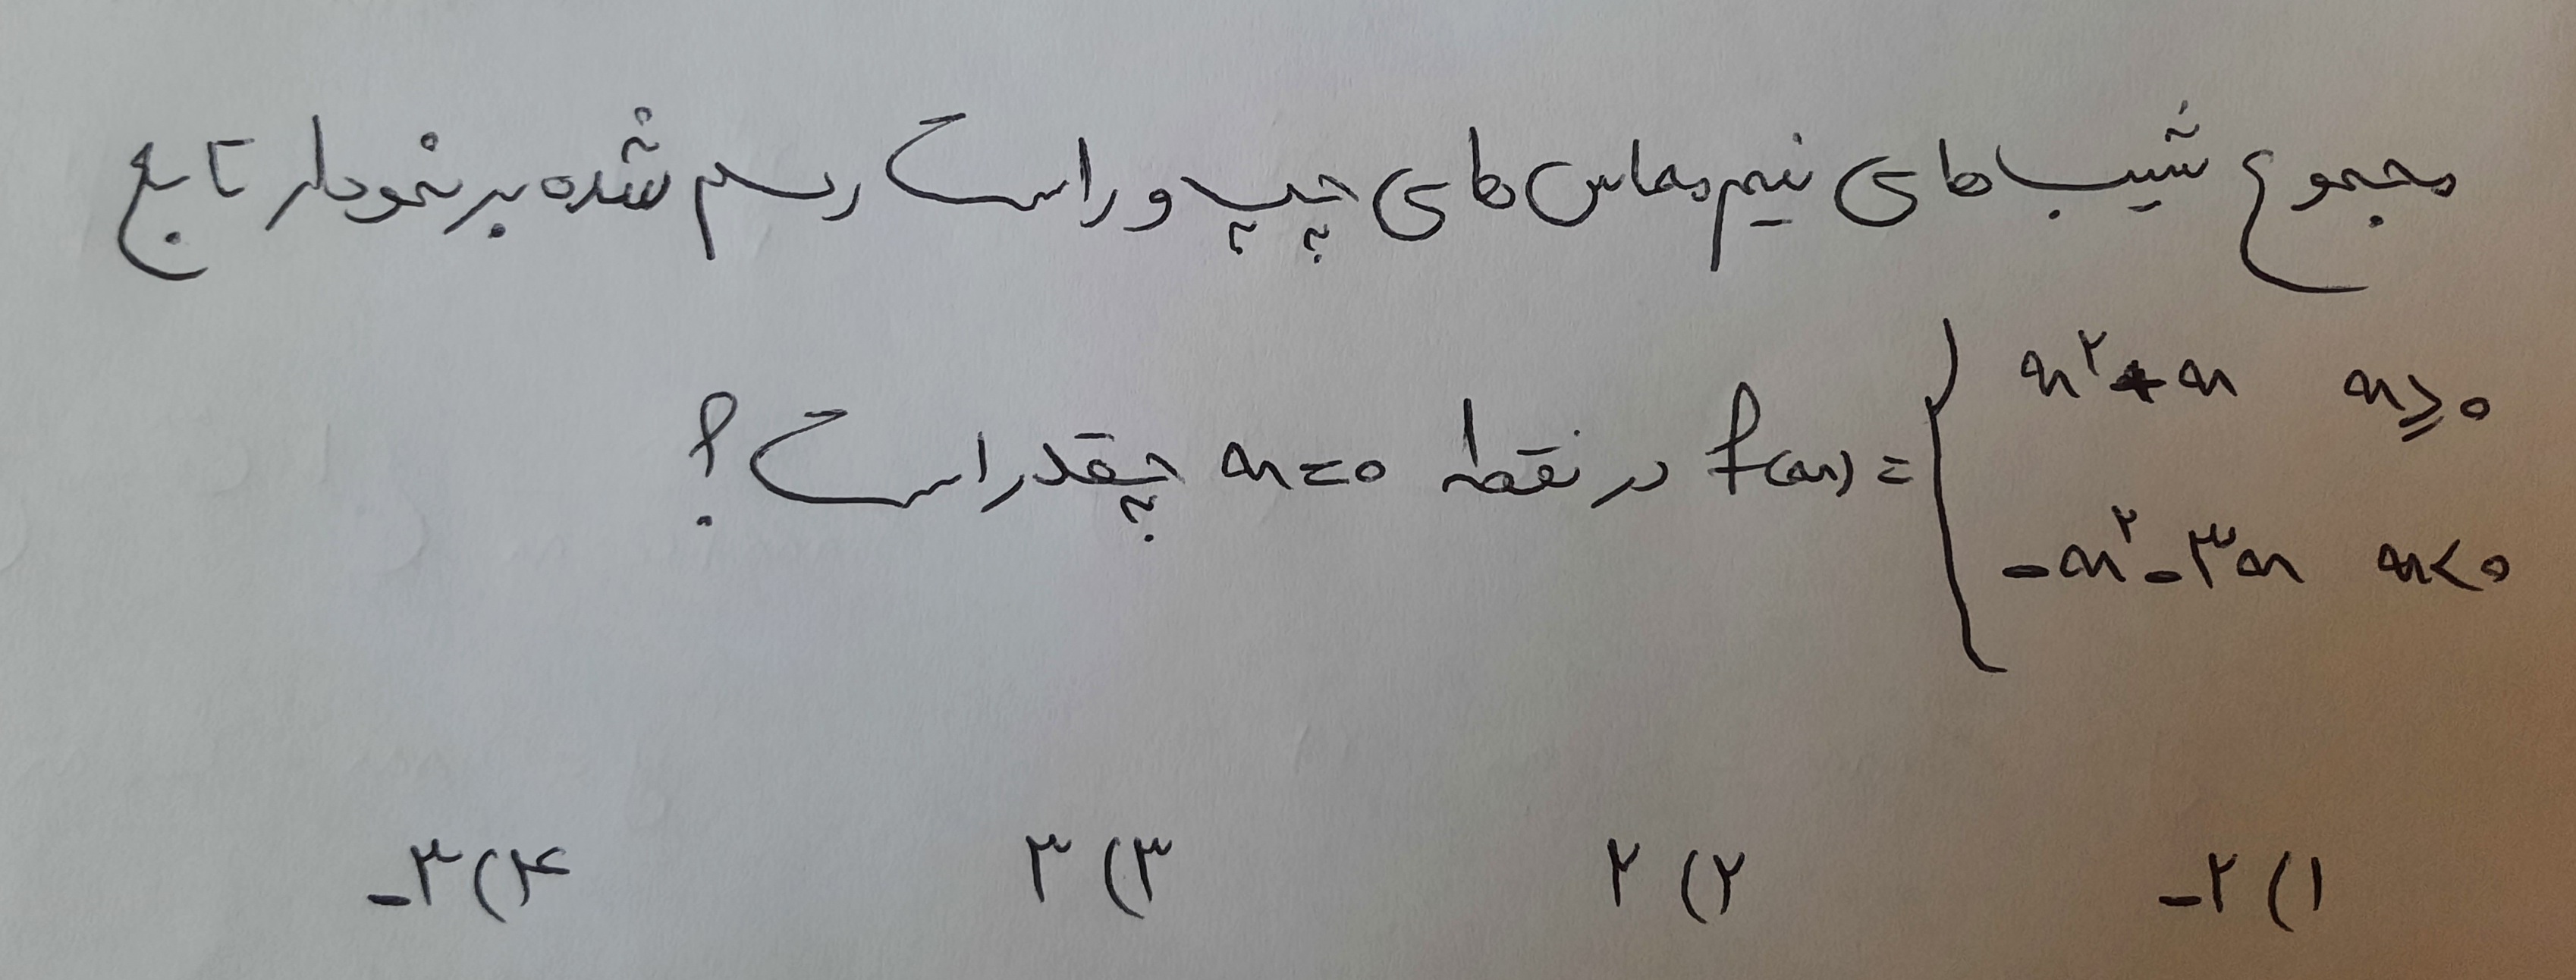 مجموع شیب های نیم مماس های چپ و راست رسم شده بر نمودار تابع
f(x) = { x² + x   x ≥ 0
−x² − ۳x   x < 0
در نقطه x = 0 چقدر است؟
۱) −۲   ۲) ۲   ۳) ۳   ۴) −۳